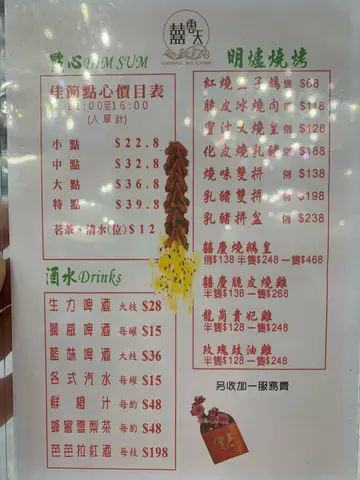 囍雲天
點心DIM SUM
佳節點心價目表
11:00至16:00
(人單計)
小點 $22.8
中點 $32.8
大點 $36.8
特點 $39.8
茗茶、清水(位) $12
酒水Drinks
生力啤酒 大枝 $28
獅威啤酒 每罐 $15
藍味啤酒 大枝 $36
各式汽水 每罐 $15
鮮橙汁 每酌 $48
蜂蜜雪梨茶 每酌 $48
芭芭拉紅酒 每枝 $198
明爐燒烤
紅燒王子鴿 隻 $68
脆皮冰燒肉 例 $118
蜜汁叉燒皇 例 $128
化皮燒乳豬 例 $188
燒味雙拼 例 $138
乳豬雙拼 例 $198
乳豬拼盆 例 $238
囍慶燒鵝皇
例$138 半隻$248 一隻$468
囍慶脆皮燒雞
半隻$138 一隻$268
龍崗貴妃雞
半隻$128 一隻$248
玫瑰豉油雞
半隻$128 一隻$248
另收加一服務費